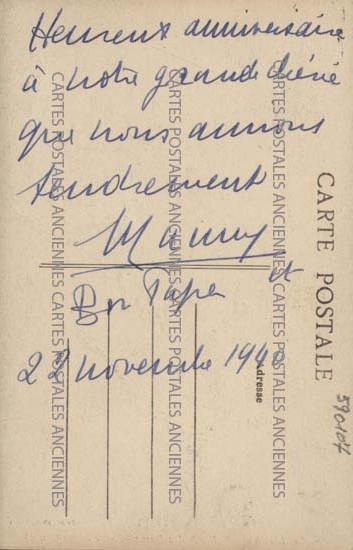 Heureux anniversaire
à notre grande chérie
que nous aimons
tendrement
Mamy et
Bon Papa
novembre
CARTE POSTALE
Adresse
590104
CARTES POSTALES ANCIENNES CARTES POSTALES ANCIENNES
CARTES POSTALES ANCIENNES CARTES POSTALES ANCIENNES
CARTES POSTALES ANCIENNES CARTES POSTALES ANCIENNES